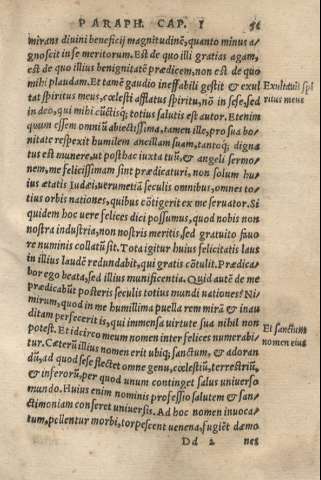 PARAPH. CAP. I 56
mirans diuini beneficij magnitudinē, quanto minus a
gnoscit in se meritorum. Est de quo illi gratias agam,
est de quo illius benignitatē prædicem, non est de quo
mihi plaudam. Et tamē gaudio ineffabili gestit & exul
tat spiritus meus, cœlesti afflatus spiritu, nō in sese, sed
in deo, qui mihi cūctisq; totius salutis est autor. Etenim
quum essem omniū abiectissima, tamen ille, pro sua bo
nitate respexit humilem ancillam suam, tantoq; digna
tus est munere, ut posthac iuxta tuū, & angeli sermo
nem, me felicissimam sint prædicaturi, non solum hu
ius ætatis Iudæi, uerumetiā seculis omnibus, omnes to
tius orbis nationes, quibus cōtigerit ex me seruator. Si
quidem hoc uere felices dici possumus, quod nobis non
nostra industria, non nostris meritis, sed gratuito fauo
re numinis collatū sit. Tota igitur huius felicitatis laus
in illius laudē redundabit, qui gratis cōtulit. Prædica
bor ego beata, sed illius munificentia. Quid autē de me
prædicabūt posteris seculis totius mundi nationes? Ni
mirum, quod in me humillima puella rem mirā & inau
ditam perfecerit is, qui immensa uirtute sua nihil non
potest. Et idcirco meum nomen inter felices numerabi
tur. Cæterū illius nomen erit ubiq; sanctum, & adoran
dū, ad quod sese flectet omne genu, cœlestiū, terrestriū,
& inferorū, per quod unum continget salus uniuerso
mundo. Huius enim nominis professio salutem & san/
ctimoniam conferet uniuersis. Ad hoc nomen inuoca/
tum, pellentur morbi, torpescent uenena, fugiēt dæmo
Dd 2 nes
Exultauit spi
ritus meus
Et sanctum
nomen eius